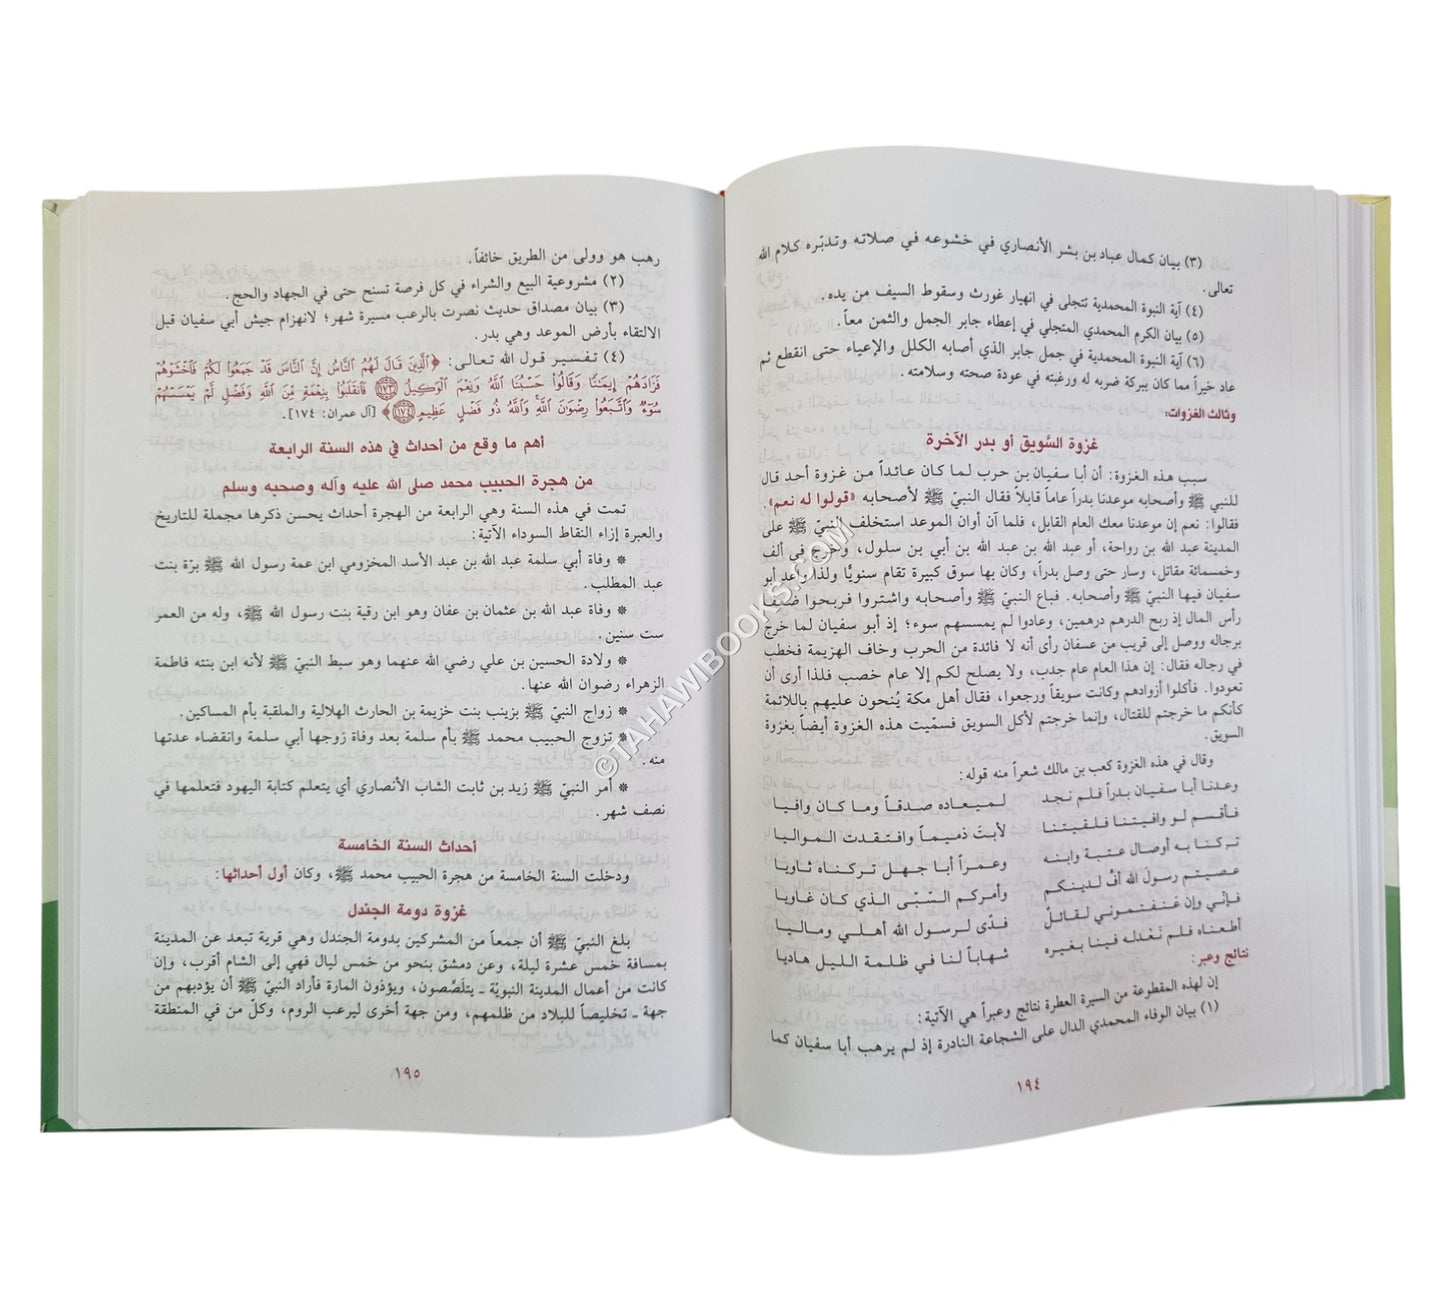 (٣) بيان كمال عباد بن بشر الأنصاري في خشوعه في صلاته وتدبّره كلام الله
تعالى.
(٤) آية النبوة المحمدية تتجلى في انهيار غورث وسقوط السيف من يده.
(٥) بيان الكرم المحمدي المتجلي في إعطاء جابر الجمل والثمن معاً.
(٦) آية النبوة المحمدية في جمل جابر الذي أصابه الكلل والإعياء حتى انقطع ثم
عاد خيراً مما كان ببركة ضربه له ورغبته في عودة صحته وسلامته.
وثالث الغزوات:
غزوة السَّويق أو بدر الآخرة
سبب هذه الغزوة: أن أبا سفيان بن حرب لما كان عائداً من غزوة أحد قال
للنبي ﷺ وأصحابه موعدنا بدراً عاماً قابلاً فقال النبيّ ﷺ لأصحابه «قولوا له نعم».
فقالوا: نعم إن موعدنا معك العام القابل، فلما آن أوان الموعد استخلف النبيّ ﷺ على
المدينة عبد الله بن رواحة، أو عبد الله بن عبد الله بن أبي بن سلول، وخرج في ألف
وخمسمائة مقاتل، وسار حتى وصل بدراً، وكان بها سوق كبيرة تقام سنويًّا ولذا واعد أبو
سفيان فيها النبيّ ﷺ وأصحابه. فباع النبيّ ﷺ وأصحابه واشتروا فربحوا ضعف
رأس المال إذ ربح الدرهم درهمين، وعادوا لم يمسسهم سوء؛ إذ أبو سفيان لما خرج
برجاله ووصل إلى قريب من عسفان رأى أنه لا فائدة من الحرب وخاف الهزيمة فخطب
في رجاله فقال: إن هذا العام عام جدب، ولا يصلح لكم إلا عام خصب فلذا أرى أن
تعودوا. فأكلوا أزوادهم وكانت سويقاً ورجعوا، فقال أهل مكة يُنحون عليهم باللائمة
كأنكم ما خرجتم للقتال، وإنما خرجتم لأكل السويق فسمّيت هذه الغزوة أيضاً بغزوة
السويق.
وقال في هذه الغزوة كعب بن مالك شعراً منه قوله:
وعدنا أبا سفيان بدراً فلم نجد لميعاده صدقاً وما كان وافيا
فأقسم لو وافيتنا فلقيتنا لأبتَ ذميماً وافتقدت المواليا
تركنا به أوصال عتبة وابنه وعمراً أبا جهل تركناه ثاويا
عصيتم رسول الله أفّ لدينكم وأمركم السّيّئ الذي كان غاويا
فإنّي وإن عنفتموني لقائل فدًى لرسول الله أهلي وماليا
أطعناه فلم نعْدله فينا بغيره شهاباً لنا في ظلمة الليل هاديا
نتائج وعبر:
إن لهذه المقطوعة من السيرة العطرة نتائج وعبراً هي الآتية:
(١) بيان الوفاء المحمدي الدال على الشجاعة النادرة إذ لم يرهب أبا سفيان كما
١٩٤
رهب هو وولى من الطريق خائفاً.
(٢) مشروعية البيع والشراء في كل فرصة تسنح حتى في الجهاد والحج.
(٣) بيان مصداق حديث نصرت بالرعب مسيرة شهر؛ لانهزام جيش أبي سفيان قبل
الالتقاء بأرض الموعد وهي بدر.
(٤) تفسير قول الله تعالى: ﴿ٱلَّذِينَ قَالَ لَهُمُ ٱلنَّاسُ إِنَّ ٱلنَّاسَ قَدْ جَمَعُوا۟ لَكُمْ فَٱخْشَوْهُمْ
فَزَادَهُمْ إِيمَـٰنًا وَقَالُوا۟ حَسْبُنَا ٱللَّهُ وَنِعْمَ ٱلْوَكِيلُ ١٧٣ فَٱنقَلَبُوا۟ بِنِعْمَةٍ مِّنَ ٱللَّهِ وَفَضْلٍ لَّمْ يَمْسَسْهُمْ
سُوٓءٌ وَٱتَّبَعُوا۟ رِضْوَٰنَ ٱللَّهِ وَٱللَّهُ ذُو فَضْلٍ عَظِيمٍ ١٧٤﴾ [آل عمران: ١٧٤].
أهم ما وقع من أحداث في هذه السنة الرابعة
من هجرة الحبيب محمد صلى الله عليه وآله وصحبه وسلم
تمت في هذه السنة وهي الرابعة من الهجرة أحداث يحسن ذكرها مجملة للتاريخ
والعبرة إزاء النقاط السوداء الآتية:
* وفاة أبي سلمة عبد الله بن عبد الأسد المخزومي ابن عمة رسول الله ﷺ برّة بنت
عبد المطلب.
* وفاة عبد الله بن عثمان بن عفان وهو ابن رقية بنت رسول الله ﷺ، وله من العمر
ست سنين.
* ولادة الحسين بن علي رضي الله عنهما وهو سبط النبيّ ﷺ لأنه ابن بنته فاطمة
الزهراء رضوان الله عنها.
* زواج النبيّ ﷺ بزينب بنت خزيمة بن الحارث الهلالية والملقبة بأم المساكين.
* تزوج الحبيب محمد ﷺ بأم سلمة بعد وفاة زوجها أبي سلمة وانقضاء عدتها
منه.
* أمر النبيّ ﷺ زيد بن ثابت الشاب الأنصاري أي يتعلم كتابة اليهود فتعلمها في
نصف شهر.
أحداث السنة الخامسة
ودخلت السنة الخامسة من هجرة الحبيب محمد ﷺ، وكان أول أحداثها:
غزوة دومة الجندل
بلغ النبيّ ﷺ أن جمعاً من المشركين بدومة الجندل وهي قرية تبعد عن المدينة
بمسافة خمس عشرة ليلة، وعن دمشق بنحو من خمس ليال فهي إلى الشام أقرب، وإن
كانت من أعمال المدينة النبويّة ـ يتلَصَّصون، ويؤذون المارة فأراد النبيّ ﷺ أن يؤدبهم من
جهة ـ تخليصاً للبلاد من ظلمهم، ومن جهة أخرى ليرعب الروم، وكلّ من في المنطقة
١٩٥
©TAHAWIBOOKS.COM